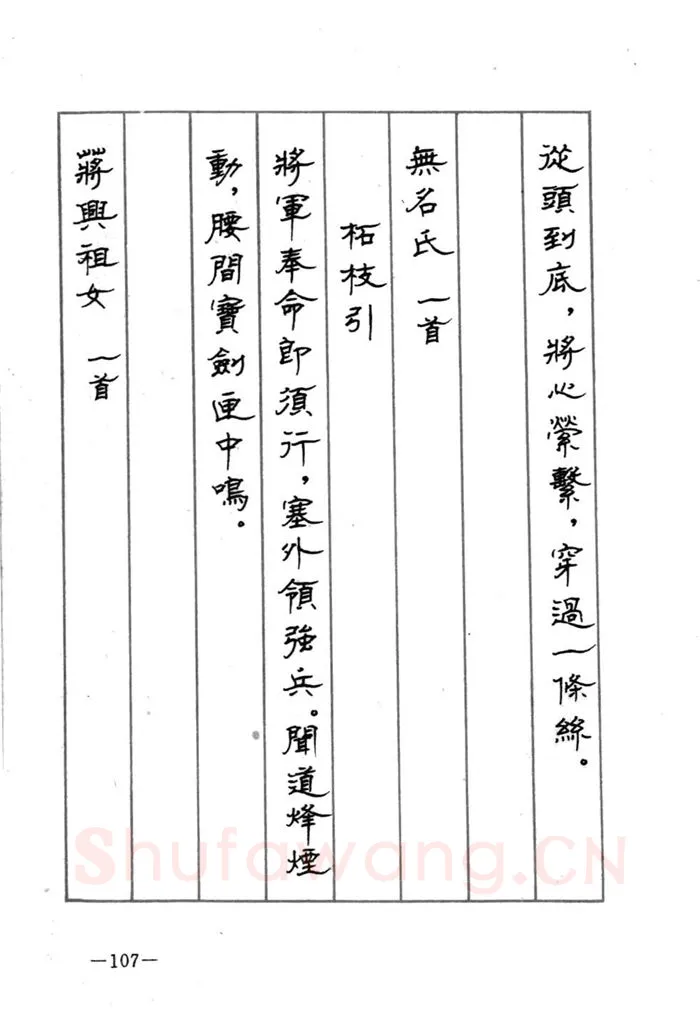 從頭到底，將心縈繫，穿過一條絲。
無名氏 一首
柘枝引
將軍奉命即須行，塞外領強兵。聞道烽煙
動，腰間寶劍匣中鳴。
蔣興祖女 一首
Shufawang.CN
—107—